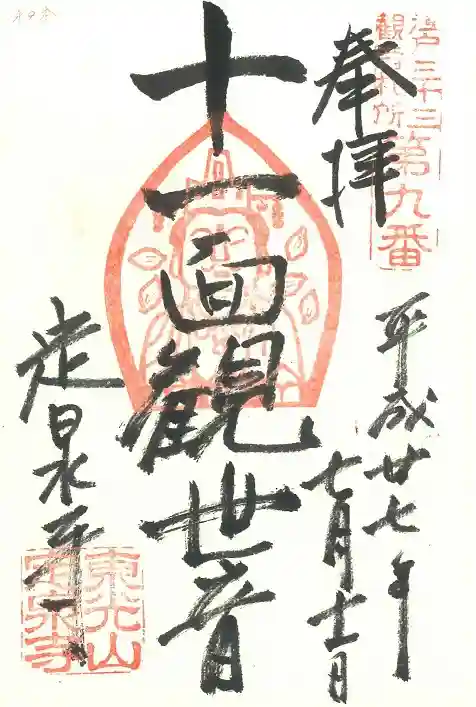 奉拝
江戸三十三
觀音札所
第九番
平成廿七年
七月十一日
十一面觀世音
定泉寺
東光山
定泉寺